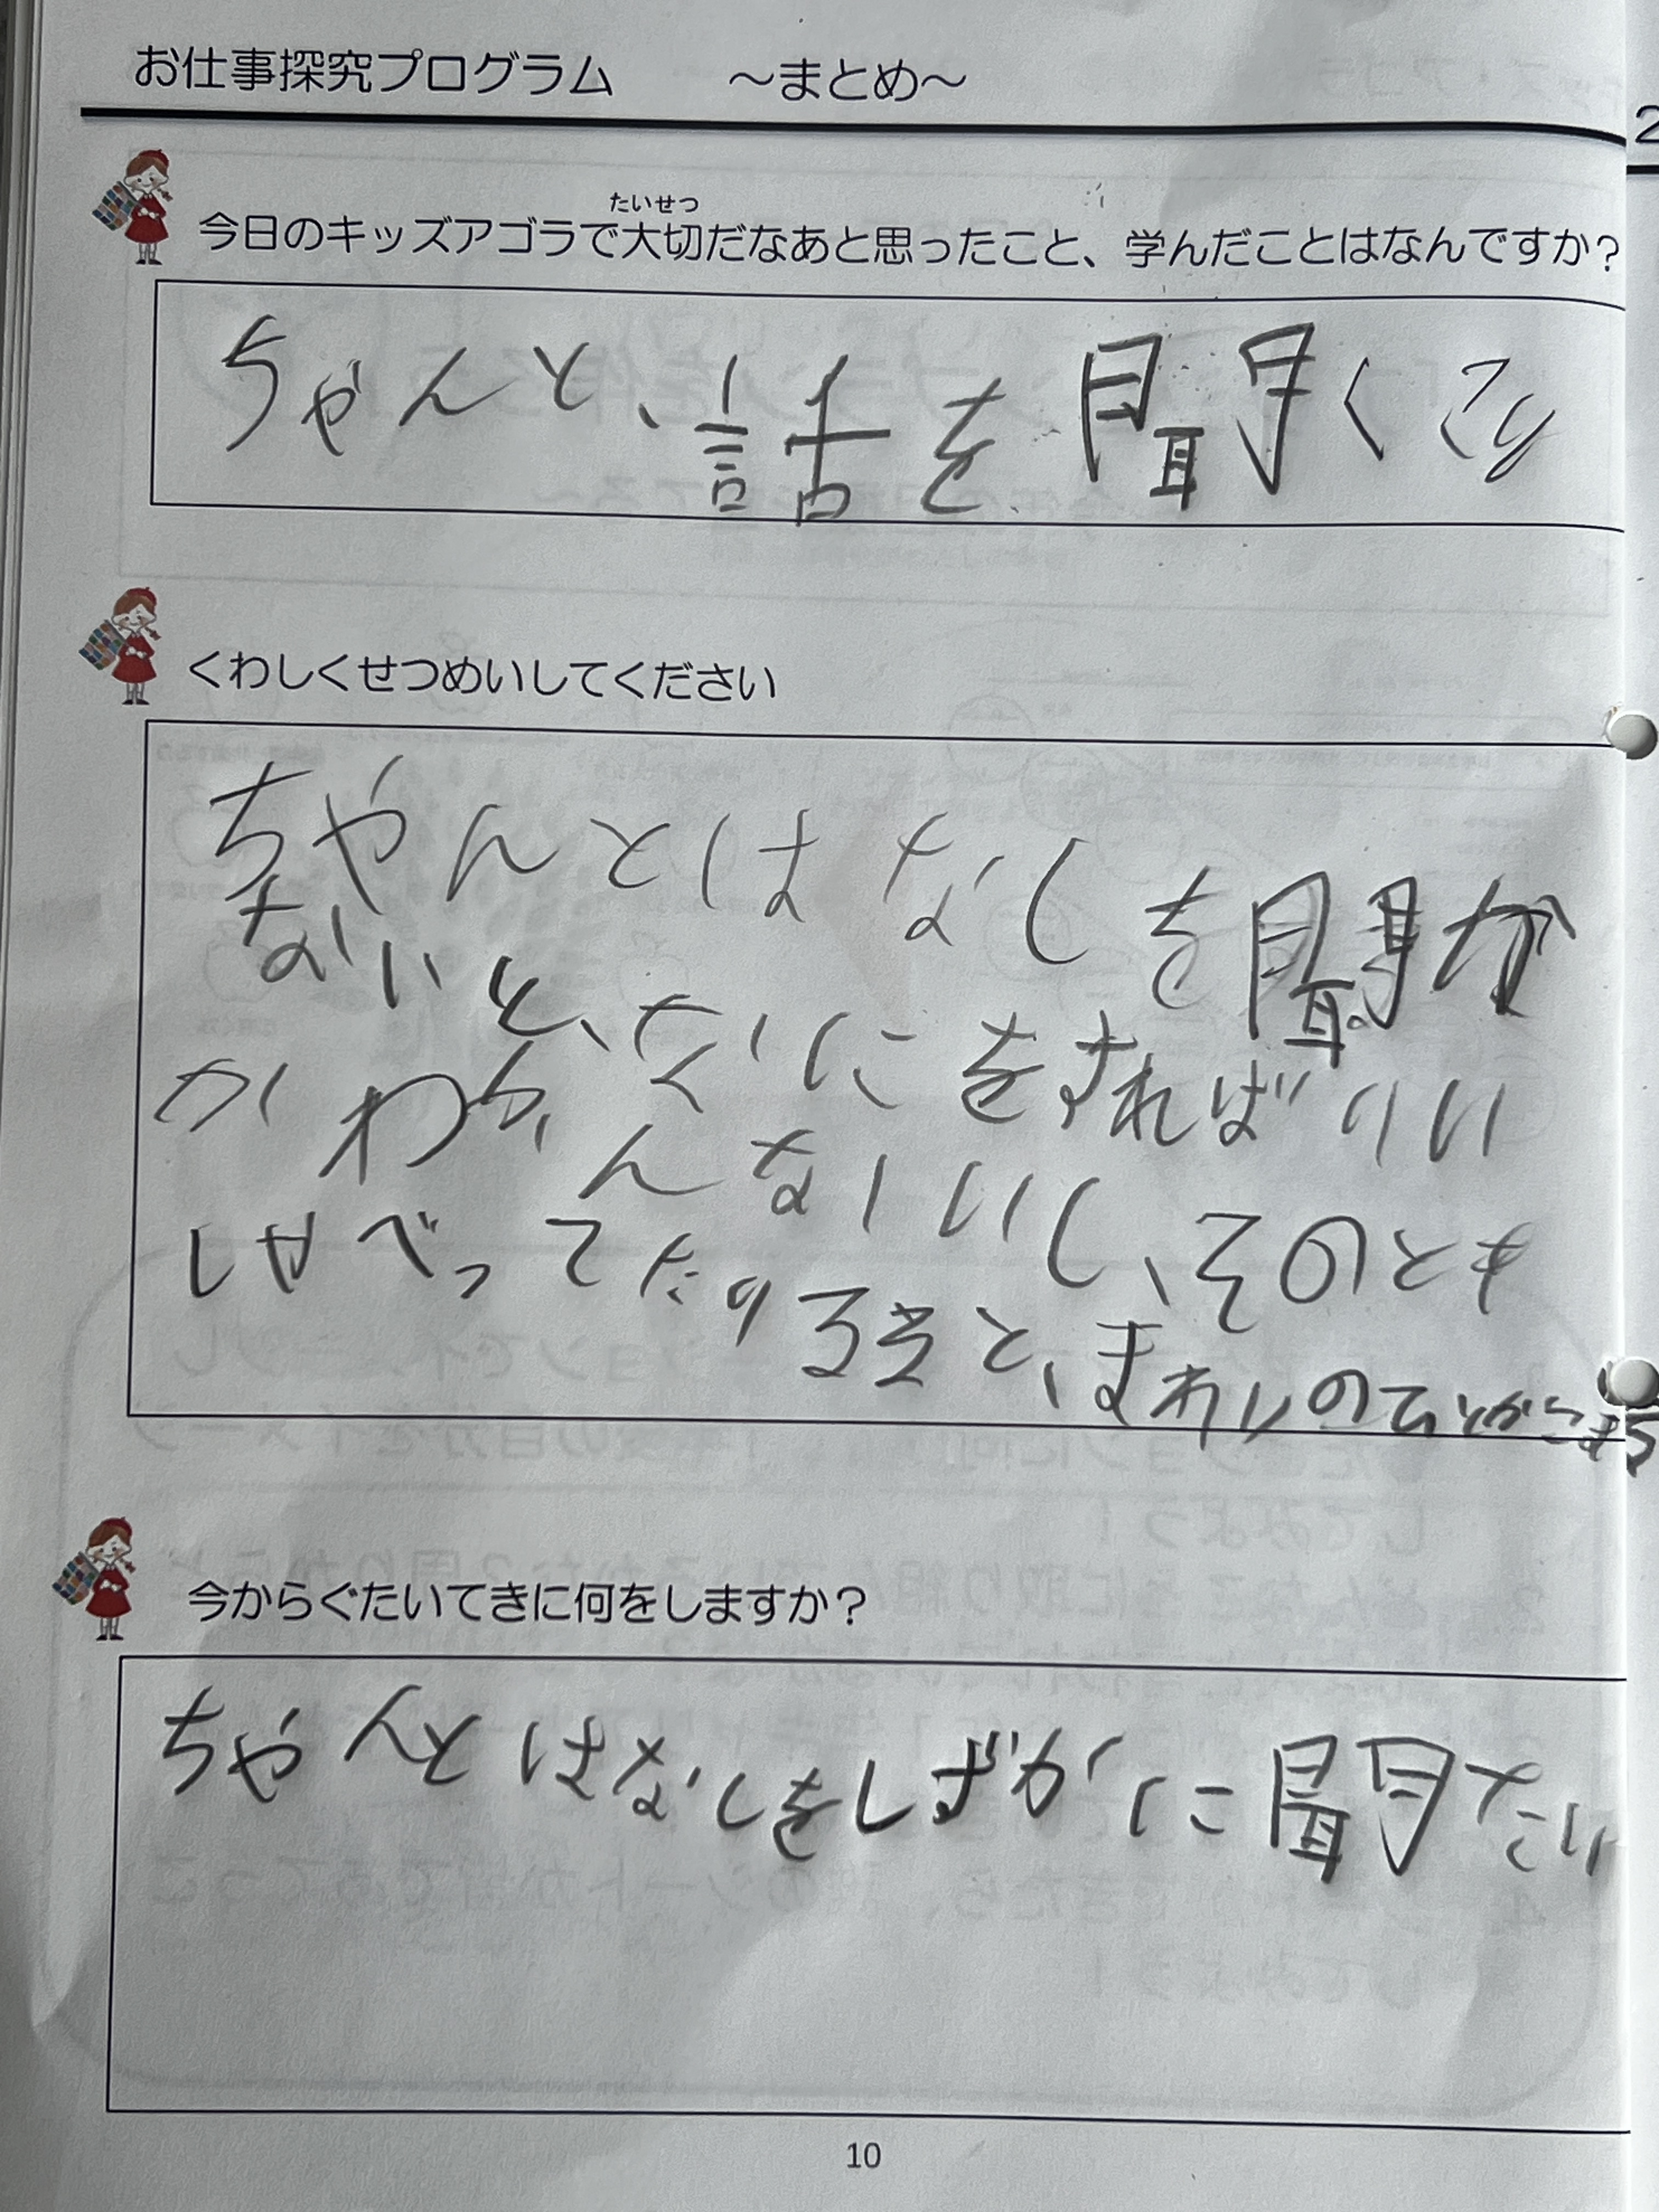 お仕事探究プログラム　～まとめ～
2
たいせつ
今日のキッズアゴラで大切だなあと思ったこと、学んだことはなんですか？
ちゃんと、話を聞くこと
くわしくせつめいしてください
ちゃんとはなしを聞か
ないと、なにをすればいい
かわかんないいし、そのとき
しゃべってたりるすと、まわりのひとから
今からぐたいてきに何をしますか？
ちゃんとはなしをしずかに聞たい
10